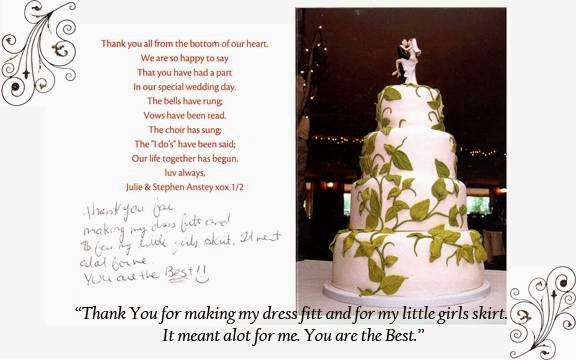 Thank you all from the bottom of our heart.
We are so happy to say
That you have had a part
In our special wedding day.
The bells have rung;
Vows have been read.
The choir has sung;
The "I do's" have been said;
Our life together has begun.
luv always,
Julie & Stephen Anstey xox 1/2
Thank you for
making my dress fitt and
for my little girls skirt. It ment
alot for me.
You are the Best!!
“Thank You for making my dress fitt and for my little girls skirt.
It meant alot for me. You are the Best.”